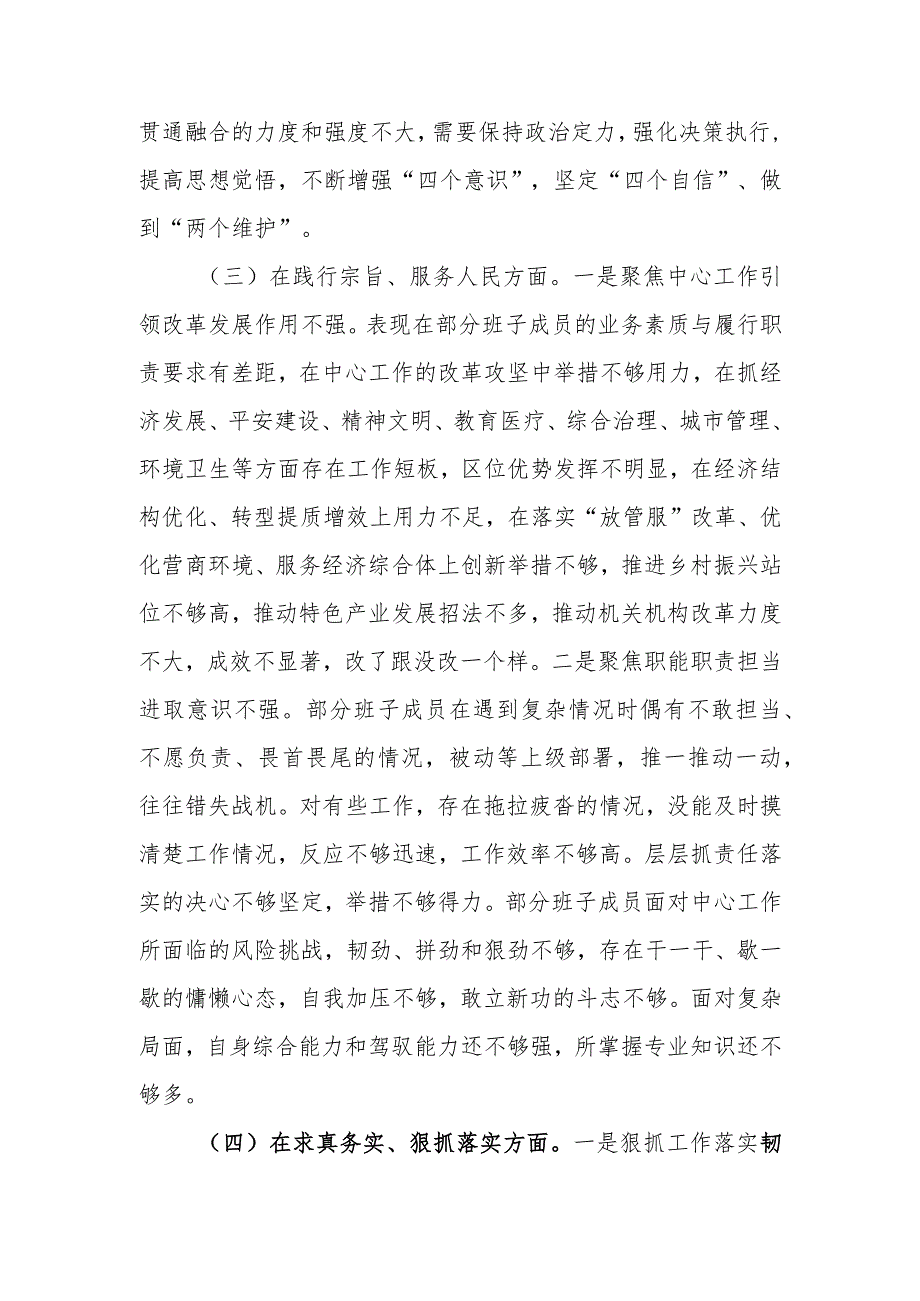 贯通融合的力度和强度不大，需要保持政治定力，强化决策执行，
提高思想觉悟，不断增强“四个意识”，坚定“四个自信”、做
到“两个维护”。
（三）在践行宗旨、服务人民方面。一是聚焦中心工作引
领改革发展作用不强。表现在部分班子成员的业务素质与履行职
责要求有差距，在中心工作的改革攻坚中举措不够用力，在抓经
济发展、平安建设、精神文明、教育医疗、综合治理、城市管理、
环境卫生等方面存在工作短板，区位优势发挥不明显，在经济结
构优化、转型提质增效上用力不足，在落实“放管服”改革、优
化营商环境、服务经济综合体上创新举措不够，推进乡村振兴站
位不够高，推动特色产业发展招法不多，推动机关机构改革力度
不大，成效不显著，改了跟没改一个样。二是聚焦职能职责担当
进取意识不强。部分班子成员在遇到复杂情况时偶有不敢担当、
不愿负责、畏首畏尾的情况，被动等上级部署，推一推动一动，
往往错失战机。对有些工作，存在拖拉疲沓的情况，没能及时摸
清楚工作情况，反应不够迅速，工作效率不够高。层层抓责任落
实的决心不够坚定，举措不够得力。部分班子成员面对中心工作
所面临的风险挑战，韧劲、拼劲和狠劲不够，存在干一干、歇一
歇的慵懒心态，自我加压不够，敢立新功的斗志不够。面对复杂
局面，自身综合能力和驾驭能力还不够强，所掌握专业知识还不
够多。
（四）在求真务实、狠抓落实方面。一是狠抓工作落实韧